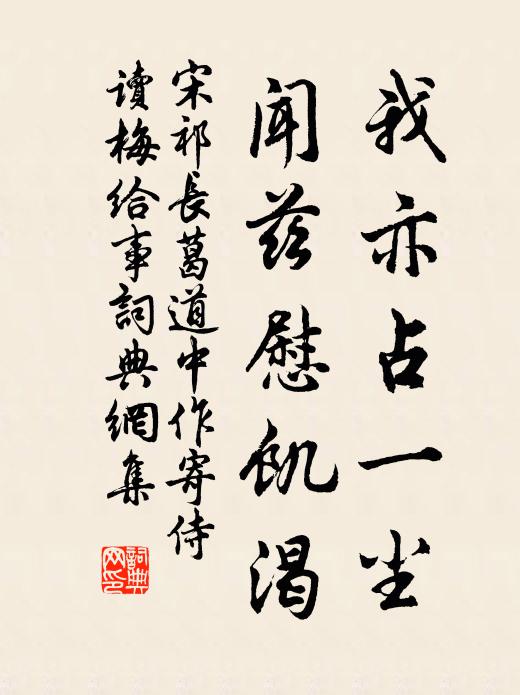 我亦占一尘
聞茲慰飢渴
宋祁長葛道中作寄侍
讀梅給事詞典網集
詞典
网印